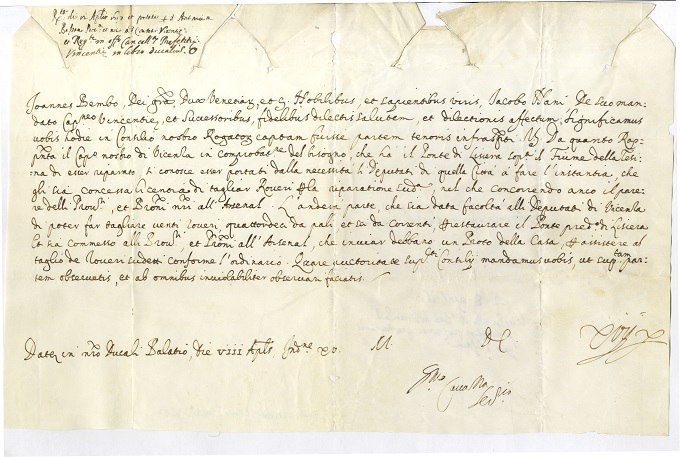 Joannes Bembo, Dei grã, Dux Venetiar, et c̃. Nobilibus, et sapientibus viris, Jacobo Nani, De suo man-
dato Cap.neo Vincentie, et Successoribus, fidelibus dilectis salutem, et dilectionis affectum. Significamus
vobis hodie in Consilio nostro Rogator captam fuisse partem tenoris infrascti Vz Da quanto Rap-
p̃nta il Cap.o nostro di Vicenza in comprobat.ne del bisogno, che ha il Ponte di Lisera sop.a il Fiume della Tesi-
na di esser riparato, si conosce esser portati dalla necessità li Deputati di quella Città à fare l'instantia, che
gli sia concessa licenza di tagliar Roveri per la riparatione sud.a, nel che concorrendo anco il pare-
re delli Prov.ri, et Pròni nri all'Arsenal. L'anderà parte, che sia data facoltà alli Deputati di Vicenza
di poter far tagliare venti roveri, quattordeci da pali, et sei da correnti, per restaurare il Ponte pred.o di Lisera
Et sia commesso alli Prov.ri, et Pròni all'Arsenal, che inviar debbano un Proto della Casa, per assistere al
taglio de roveri sudetti conforme l'ordinario. Quare auctoritate sup.ti Consilij mandamus vobis, ut sup.tam par-
tem observetis, et ab omnibus inviolabiliter observari faciatis.
Dat in nro Ducali Palatio, Die VIII Aplis Ind.ne XV. M. DC. XVII